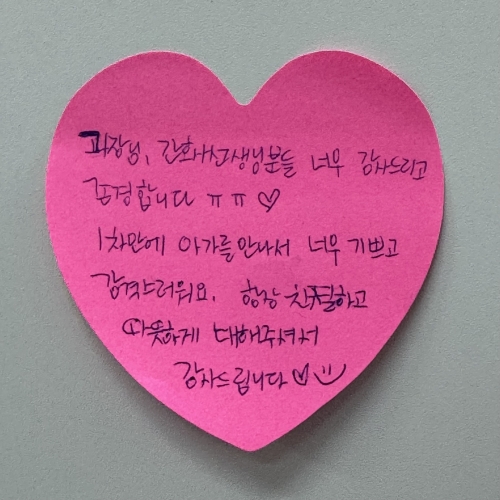 과장님, 간호사선생님분들 너무 감사드리고
존경합니다 ㅠㅠ♡
1차만에 아가를 만나서 너무 기쁘고
감격스러워요. 항상 친절하고
따뜻하게 대해주셔서
감사드립니다♡